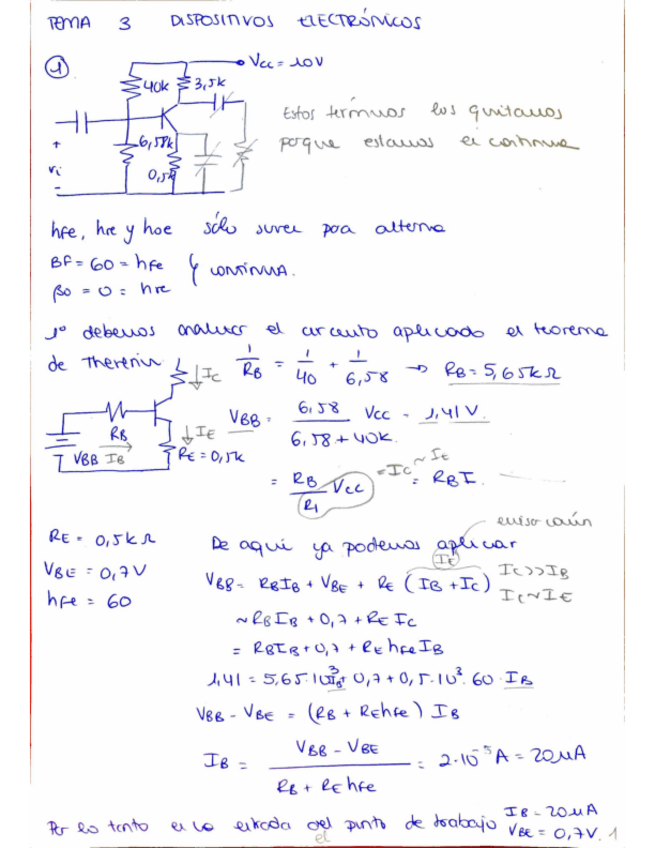 TEMA 3 DISPOSITIVOS ELECTRÓNICOS
①
Vcc = 10V
40k
3,5k
6,58k
0,5k
+
Vi
-
Estos términos los quitamos
porque estamos en continua
hfe, hre y hoe sólo sirven para alterna
BF = 60 = hfe } y continua.
βo = 0 = hre
1º debemos analizar el circuito aplicando el teorema
de Thevenin
1/RB = 1/40 + 1/6,58 → RB = 5,65kΩ
IC
RB
VBB IB
IE
RE = 0,5k
VBB = 6,58/(6,58+40k) Vcc = 1,41 V.
= RB/R1 Vcc = RB I.
= IC ~ IE
emisor común
RE = 0,5kΩ
VBE = 0,7V
hfe = 60
De aquí ya podemos aplicar
IE
VBB = RBIB + VBE + RE (IB + IC)
IC>>IB
IC~IE
~RBIB + 0,7 + REIC
= RBIB + 0,7 + RE hfe IB
1,41 = 5,65·10³IB + 0,7 + 0,5·10³·60·IB
VBB - VBE = (RB + REhfe) IB
IB = (VBB - VBE)/(RB + RE hfe) = 2·10⁻⁵A = 20μA
Por lo tanto en la entrada del punto de trabajo IB = 20μA
VBE = 0,7V.
el
1